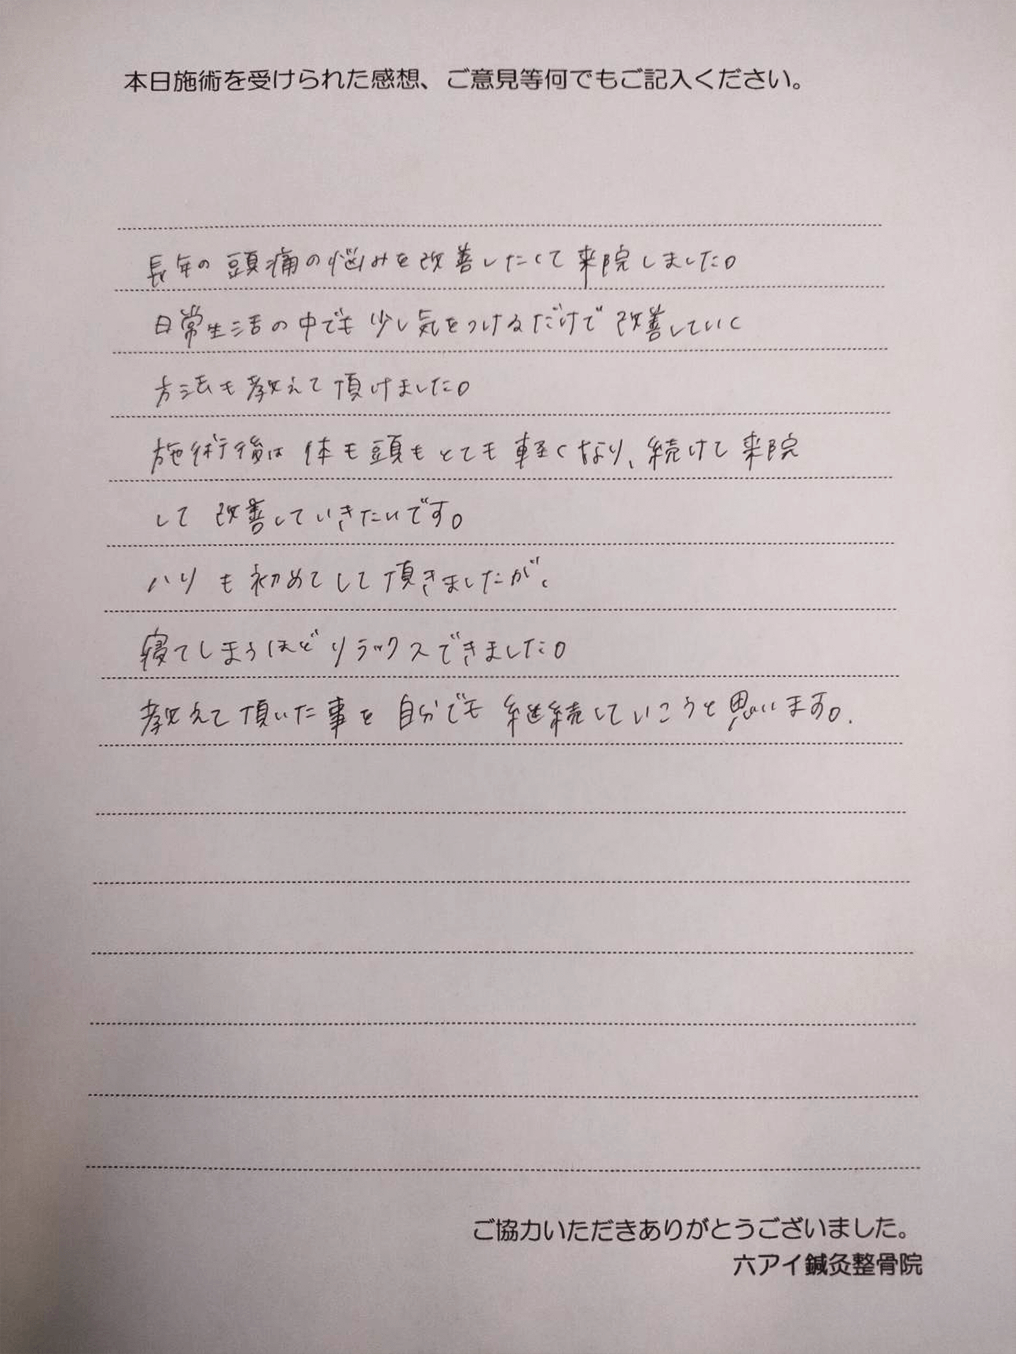 本日施術を受けられた感想、ご意見等何でもご記入ください。
長年の頭痛の悩みを改善したくて来院しました。
日常生活の中でも少し気をつけるだけで改善していく
方法も教えて頂けました。
施術後は体も頭もとても軽くなり、続けて来院
して改善していきたいです。
ハリも初めてして頂きましたが、
寝てしまうほどリラックスできました。
教えて頂いた事を自分でも継続していこうと思います。
ご協力いただきありがとうございました。
六アイ鍼灸整骨院